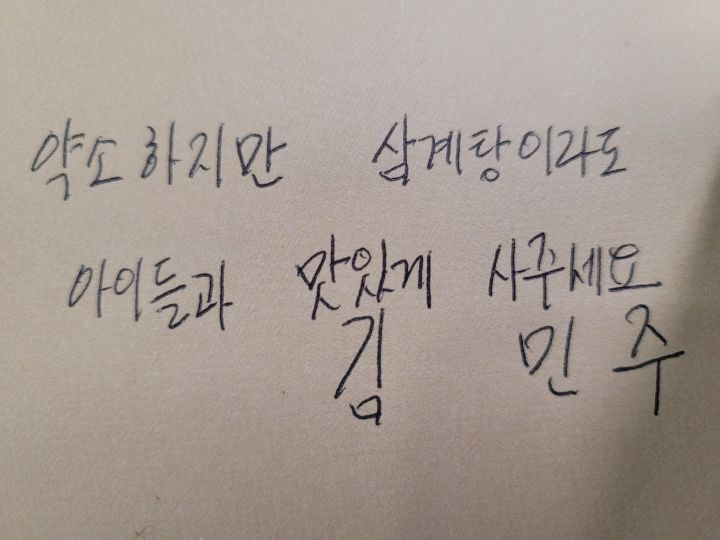 약소하지만 삼계탕이라도
아이들과 맛있게 사주세요
김 민 주